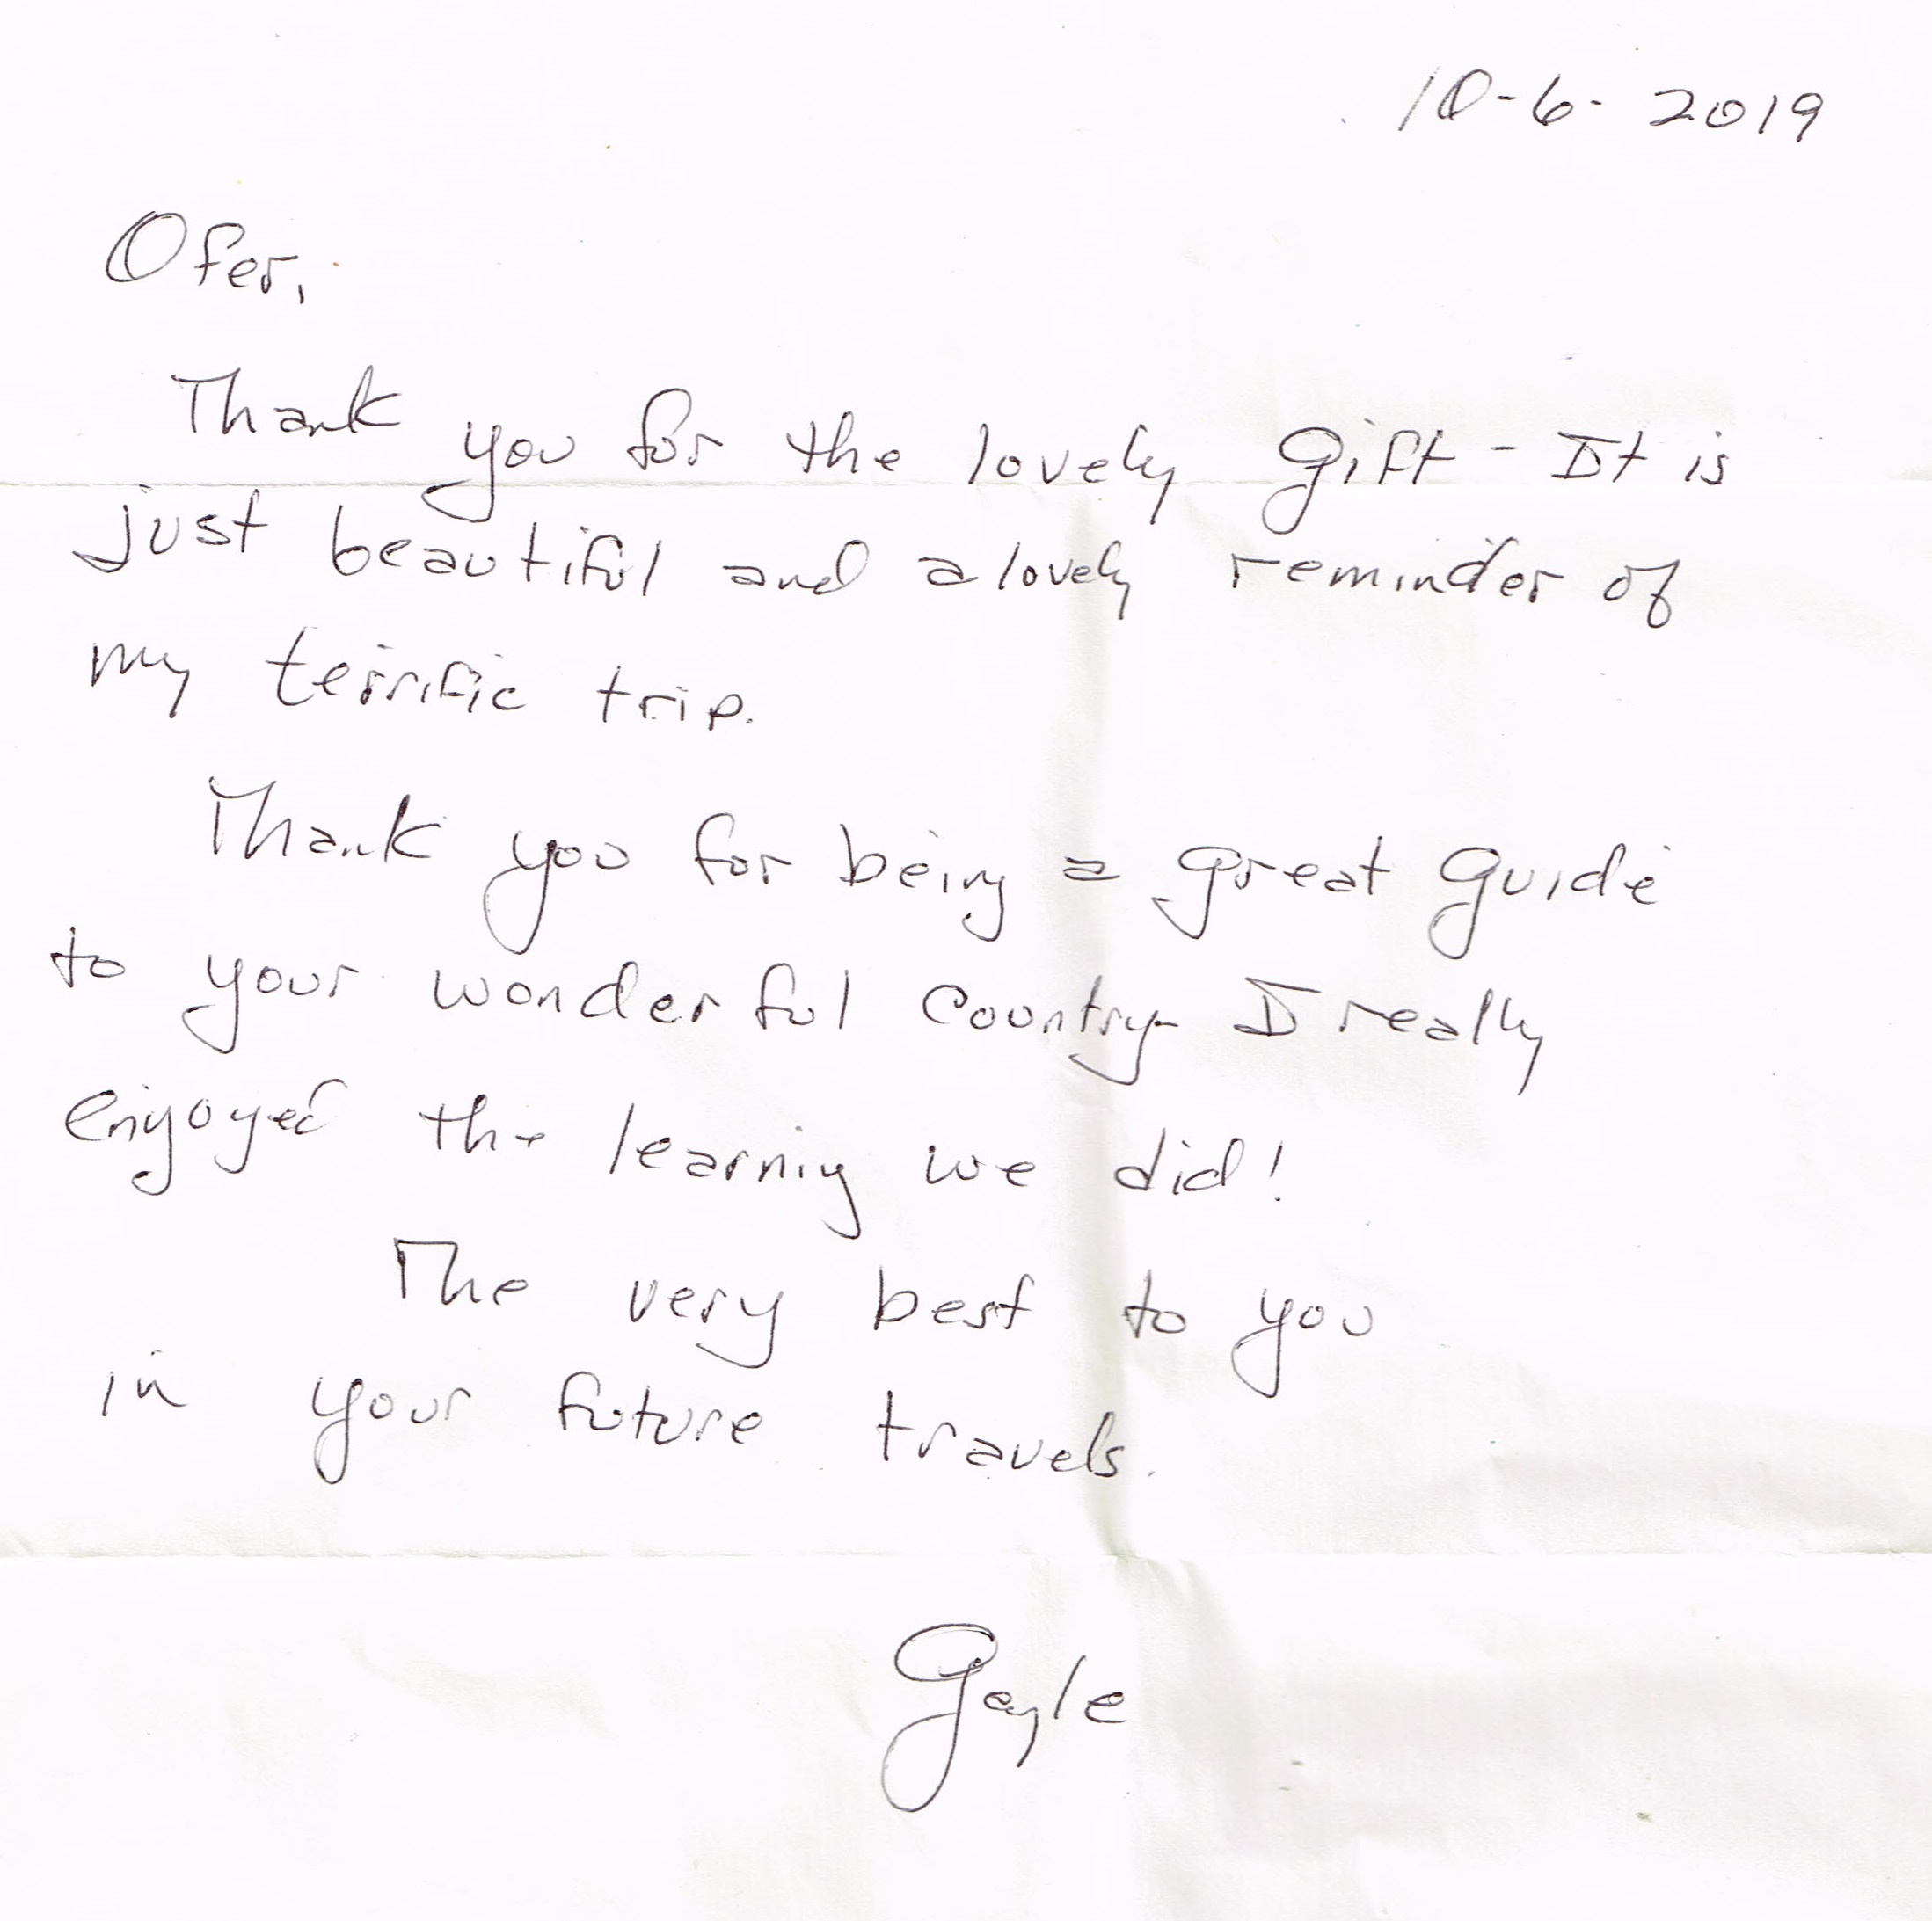 10-6-2019
Ofer,
Thank you for the lovely gift - It is
just beautiful and a lovely reminder of
my terrific trip.
Thank you for being a great guide
to your wonderful country - I really
enjoyed the learning we did!
The very best to you
in your future travels.
Gayle